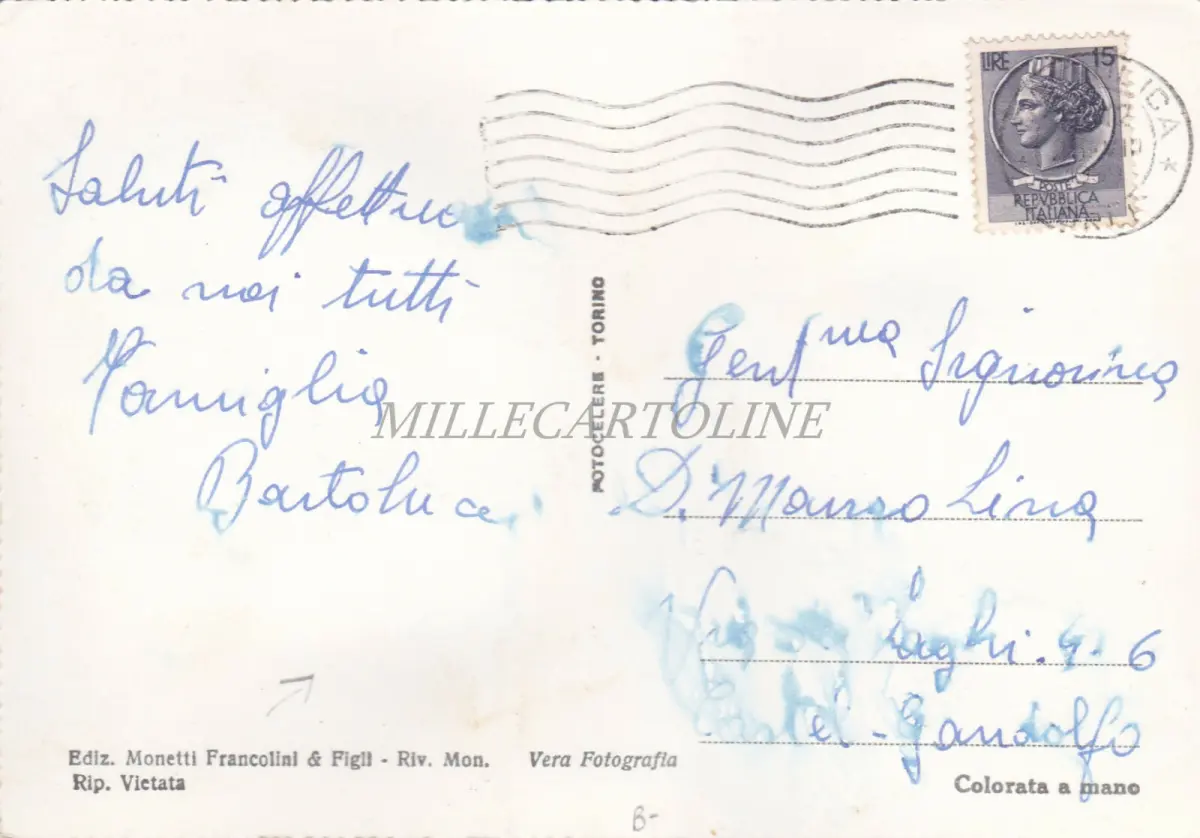 Saluti affettuo
da noi tutti
Famiglia
Bartolucci
LIRE 15
POSTE
REPVBBLICA
ITALIANA
FOTOCELERE - TORINO
Gent.ma Signorina
D. Manso Lina
Laghi. 6
Castel-Gandolfo
MILLECARTOLINE
Ediz. Monetti Francolini & Figli - Riv. Mon.
Rip. Vietata
Vera Fotografia
Colorata a mano
B-